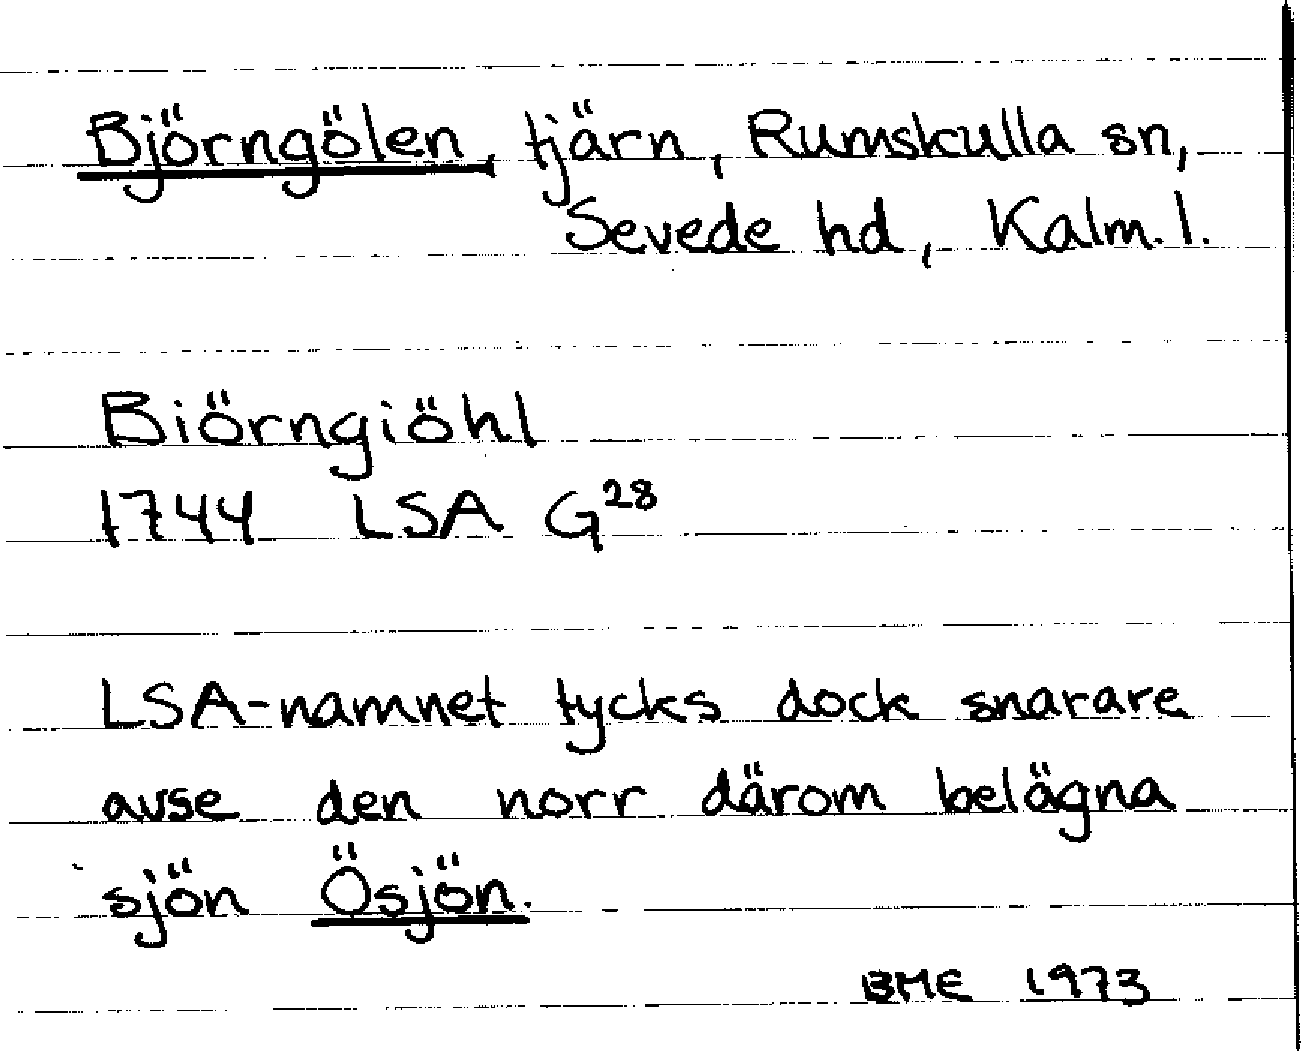 Björngölen, tjärn, Rumskulla sn,
Sevede hd, Kalm. l.
Biörngiöhl
1744 LSA G28
LSA-namnet tycks dock snarare
avse den norr därom belägna
sjön Ösjön.
BME 1973